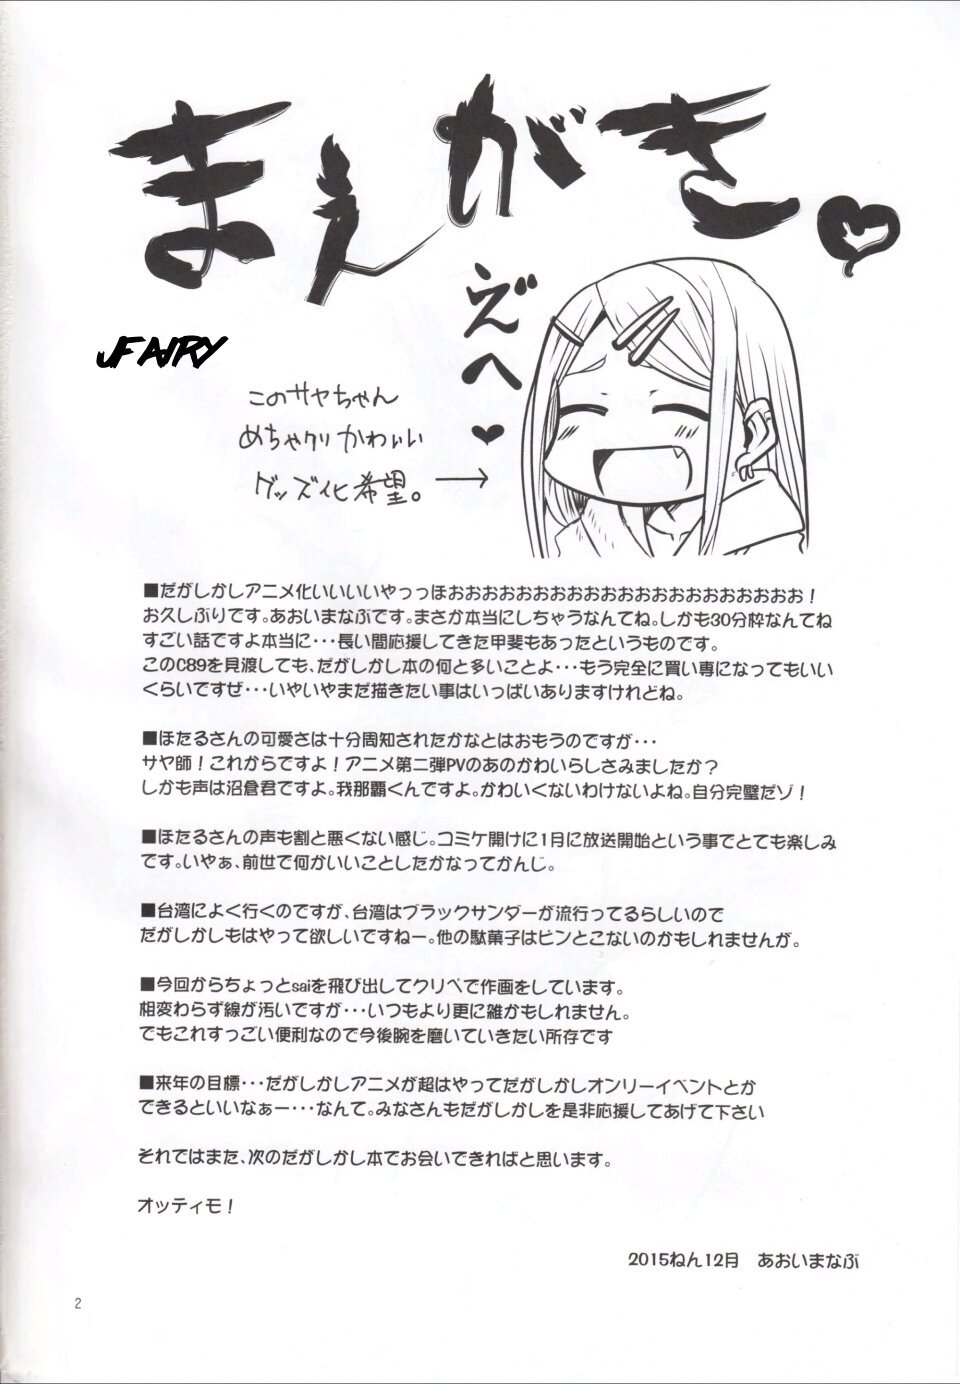 まえがき
えへ
JFAIRY
このサヤちゃん
めちゃクリかわいい
グッズ化希望。
■だがしかしアニメ化いいいいやっっほおおおおおおおおおおおおおおおおおおおおお！
お久しぶりです。あおいまなぶです。まさか本当にしちゃうなんてね。しかも30分枠なんてね
すごい話ですよ本当に・・・長い間応援してきた甲斐もあったというものです。
このC89を見渡しても、だがしかし本の何と多いことよ・・・もう完全に買い専になってもいい
くらいですぜ・・・いやいやまだ描きたい事はいっぱいありますけれどね。
■ほたるさんの可愛さは十分周知されたかなとはおもうのですが・・・
サヤ師！これからですよ！アニメ第二弾PVのあのかわいらしさみましたか？
しかも声は沼倉君ですよ。我那覇くんですよ。かわいくないわけないよね。自分完璧だゾ！
■ほたるさんの声も割と悪くない感じ。コミケ開けに1月に放送開始という事でとても楽しみ
です。いやぁ、前世で何かいいことしたかなってかんじ。
■台湾によく行くのですが、台湾はブラックサンダーが流行ってるらしいので
だがしかしもはやって欲しいですねー。他の駄菓子はピンとこないのかもしれませんが。
■今回からちょっとsaiを飛び出してクリペで作画をしています。
相変わらず線が汚いですが・・・いつもより更に雑かもしれません。
でもこれすっごい便利なので今後腕を磨いていきたい所存です
■来年の目標・・・だがしかしアニメが超はやってだがしかしオンリーイベントとか
できるといいなぁー・・・なんて。みなさんもだがしかしを是非応援してあげて下さい
それではまた、次のだがしかし本でお会いできればと思います。
オッティモ！
2015ねん12月　あおいまなぶ
2